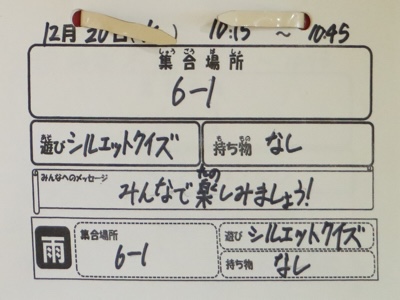 12月20日 10:15 ～ 10:45
集合場所
しゅうごうばしょ
6-1
遊び シルエットクイズ
持ち物 なし
みんなへのメッセージ
みんなで楽しみましょう!
たの
雨
集合場所
6-1
遊び シルエットクイズ
持ち物 なし